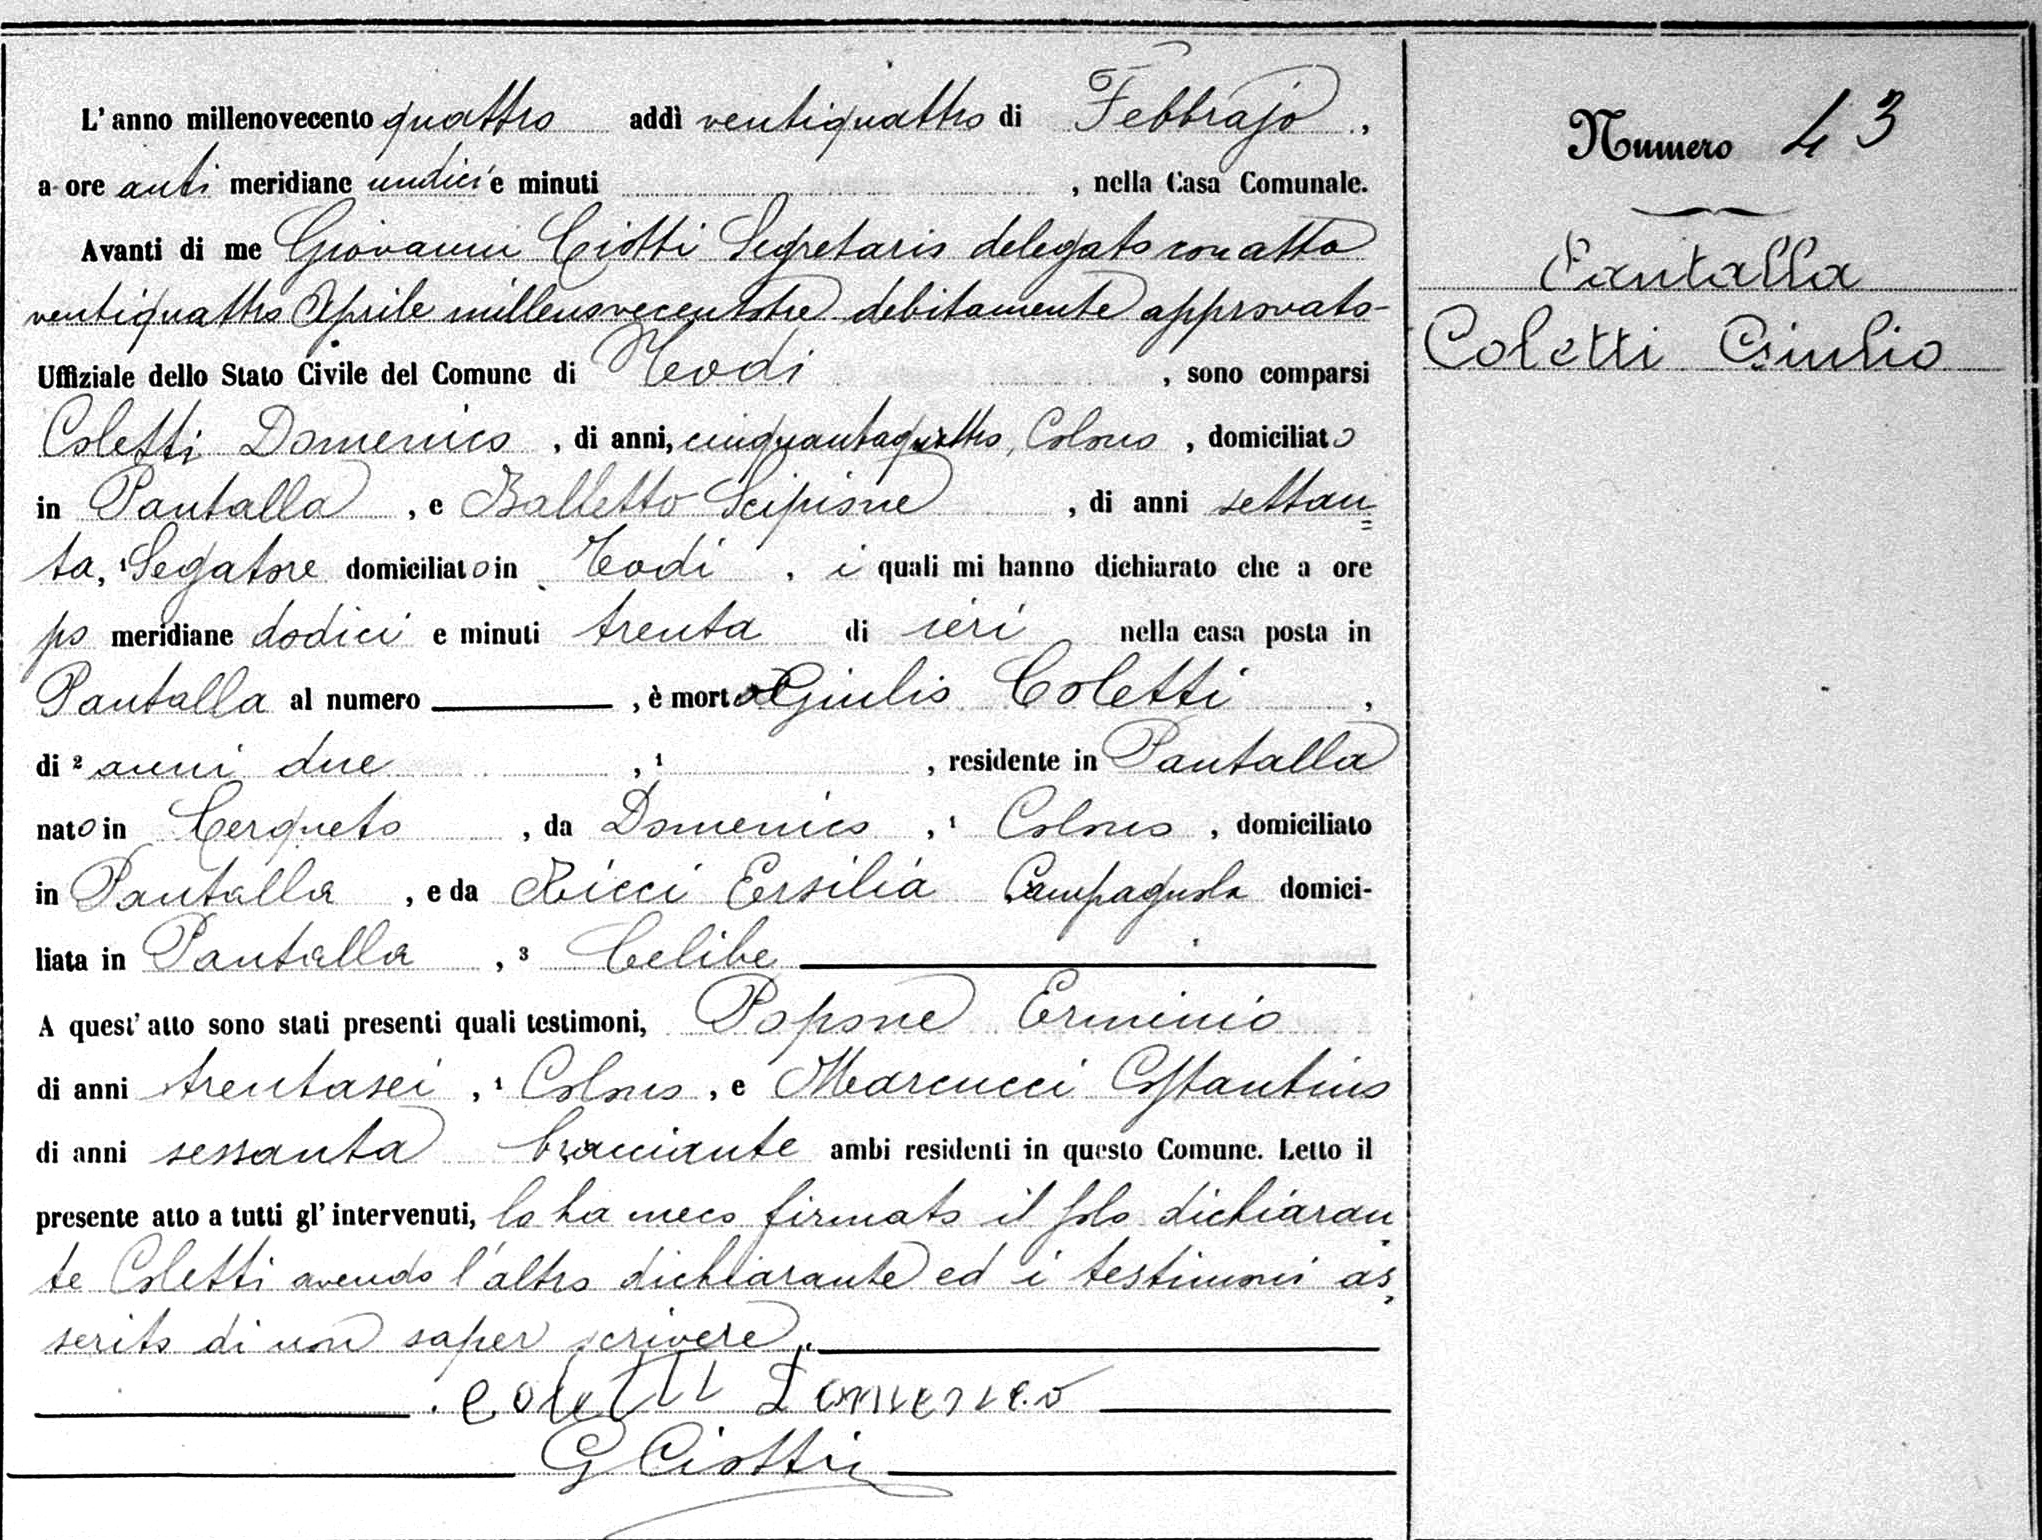 L' anno millenovecento quattro addì ventiquattro di Febbrajo ,
a ore anti meridiane undici e minuti , nella Casa Comunale.
Avanti di me Giovanni Ciotti Segretario delegato con atto
ventiquattro Aprile millenovecentotre debitamente approvato
Uffiziale dello Stato Civile del Comune di Todi , sono comparsi
Coletti Domenico , di anni, cinquantaquattro, Colono , domiciliato
in Pantalla , e Balletto Scipione , di anni settan
ta, ¹ Segatore domiciliato in Todi , i quali mi hanno dichiarato che a ore
po meridiane dodici e minuti trenta di ieri nella casa posta in
Pantalla al numero , è morto Giulio Coletti ,
di ² anni due , ¹ , residente in Pantalla
nato in Cerqueto , da Domenico , ¹ Colono , domiciliato
in Pantalla , e da Ricci Ersilia Campagnola domici-
liata in Pantalla , ³ Celibe
A quest' atto sono stati presenti quali testimoni, Popone Erminio
di anni trentasei , ¹ Colono , e Marcucci Costantino
di anni sessanta bracciante ambi residenti in questo Comune. Letto il
presente atto a tutti gl' intervenuti, lo ha meco firmato il solo dichiaran
te Coletti avendo l'altro dichiarante ed i testimoni as
serito di non saper scrivere.
Coletti Domenico
G Ciotti
Numero 43
Pantalla
Coletti Giulio